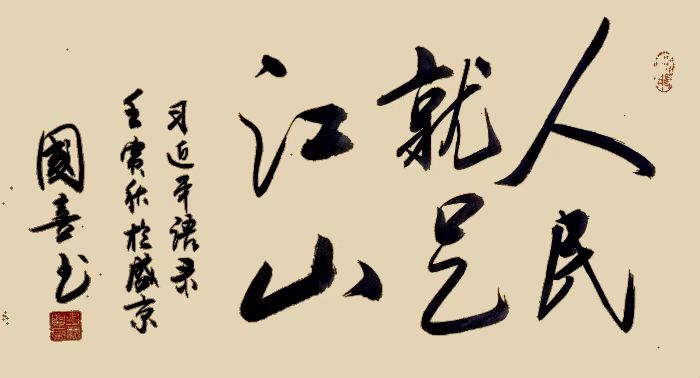 人民
就是
江山
习近平语录
壬寅秋于盛京
國喜书